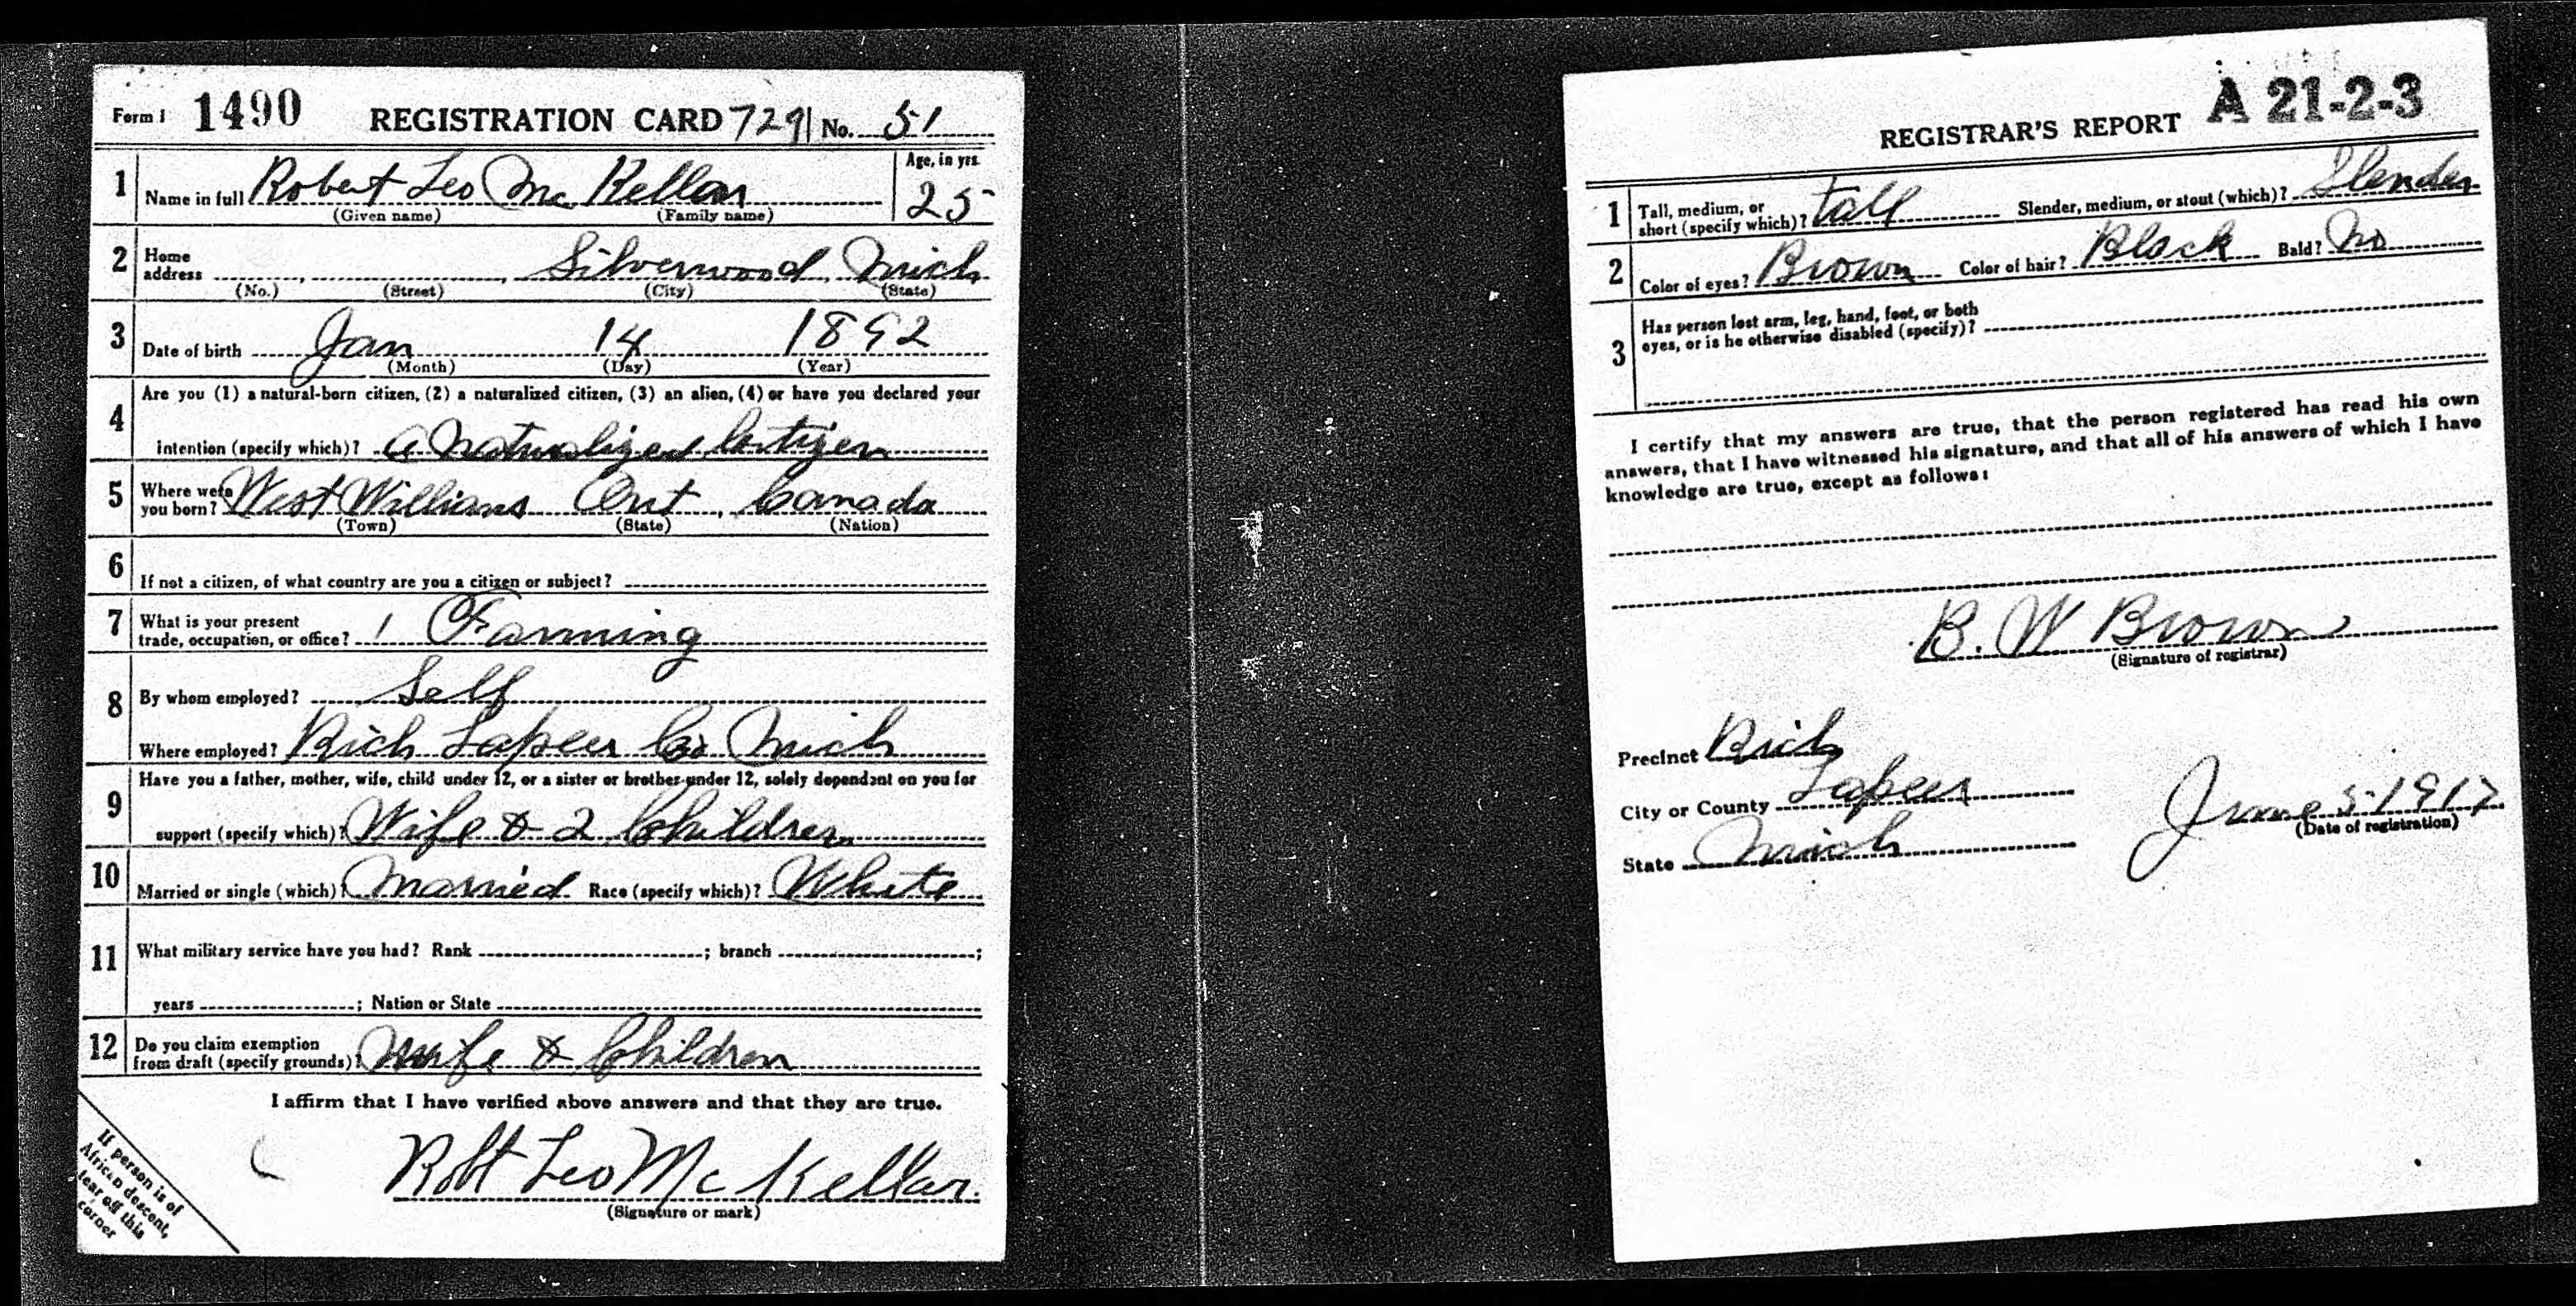 Form 1 1490 REGISTRATION CARD 729 No. 51
1 Name in full Robert Leo McKellar Age, in yrs. 25
(Given name) (Family name)
2 Home address Silverwood, Mich
(No.) (Street) (City) (State)
3 Date of birth Jan 14 1892
(Month) (Day) (Year)
4 Are you (1) a natural-born citizen, (2) a naturalized citizen, (3) an alien, (4) or have you declared your
intention (specify which)? a Naturalized Citizen
5 Where were you born? West Williams Ont, Canada
(Town) (State) (Nation)
6 If not a citizen, of what country are you a citizen or subject?
7 What is your present
trade, occupation, or office? Farming
8 By whom employed? Self
Where employed? Rich Lapeer Co Mich
9 Have you a father, mother, wife, child under 12, or a sister or brother under 12, solely dependent on you for
support (specify which)? Wife & 2 Children
10 Married or single (which)? Married Race (specify which)? White
11 What military service have you had? Rank ; branch ;
years ; Nation or State
12 Do you claim exemption
from draft (specify grounds)? Wife & Children
I affirm that I have verified above answers and that they are true.
Robt Leo McKellar.
(Signature or mark)
If person is of
African descent,
tear off this
corner
REGISTRAR'S REPORT A 21-2-3
1 Tall, medium, or
short (specify which)? Tall Slender, medium, or stout (which)? Slender
2 Color of eyes? Brown Color of hair? Black Bald? No
3 Has person lost arm, leg, hand, foot, or both
eyes, or is he otherwise disabled (specify)?
I certify that my answers are true, that the person registered has read his own
answers, that I have witnessed his signature, and that all of his answers of which I have
knowledge are true, except as follows:
B. W Brown
(Signature of registrar)
Precinct Rich
City or County Lapeer
State Mich
June 5-1917
(Date of registration)